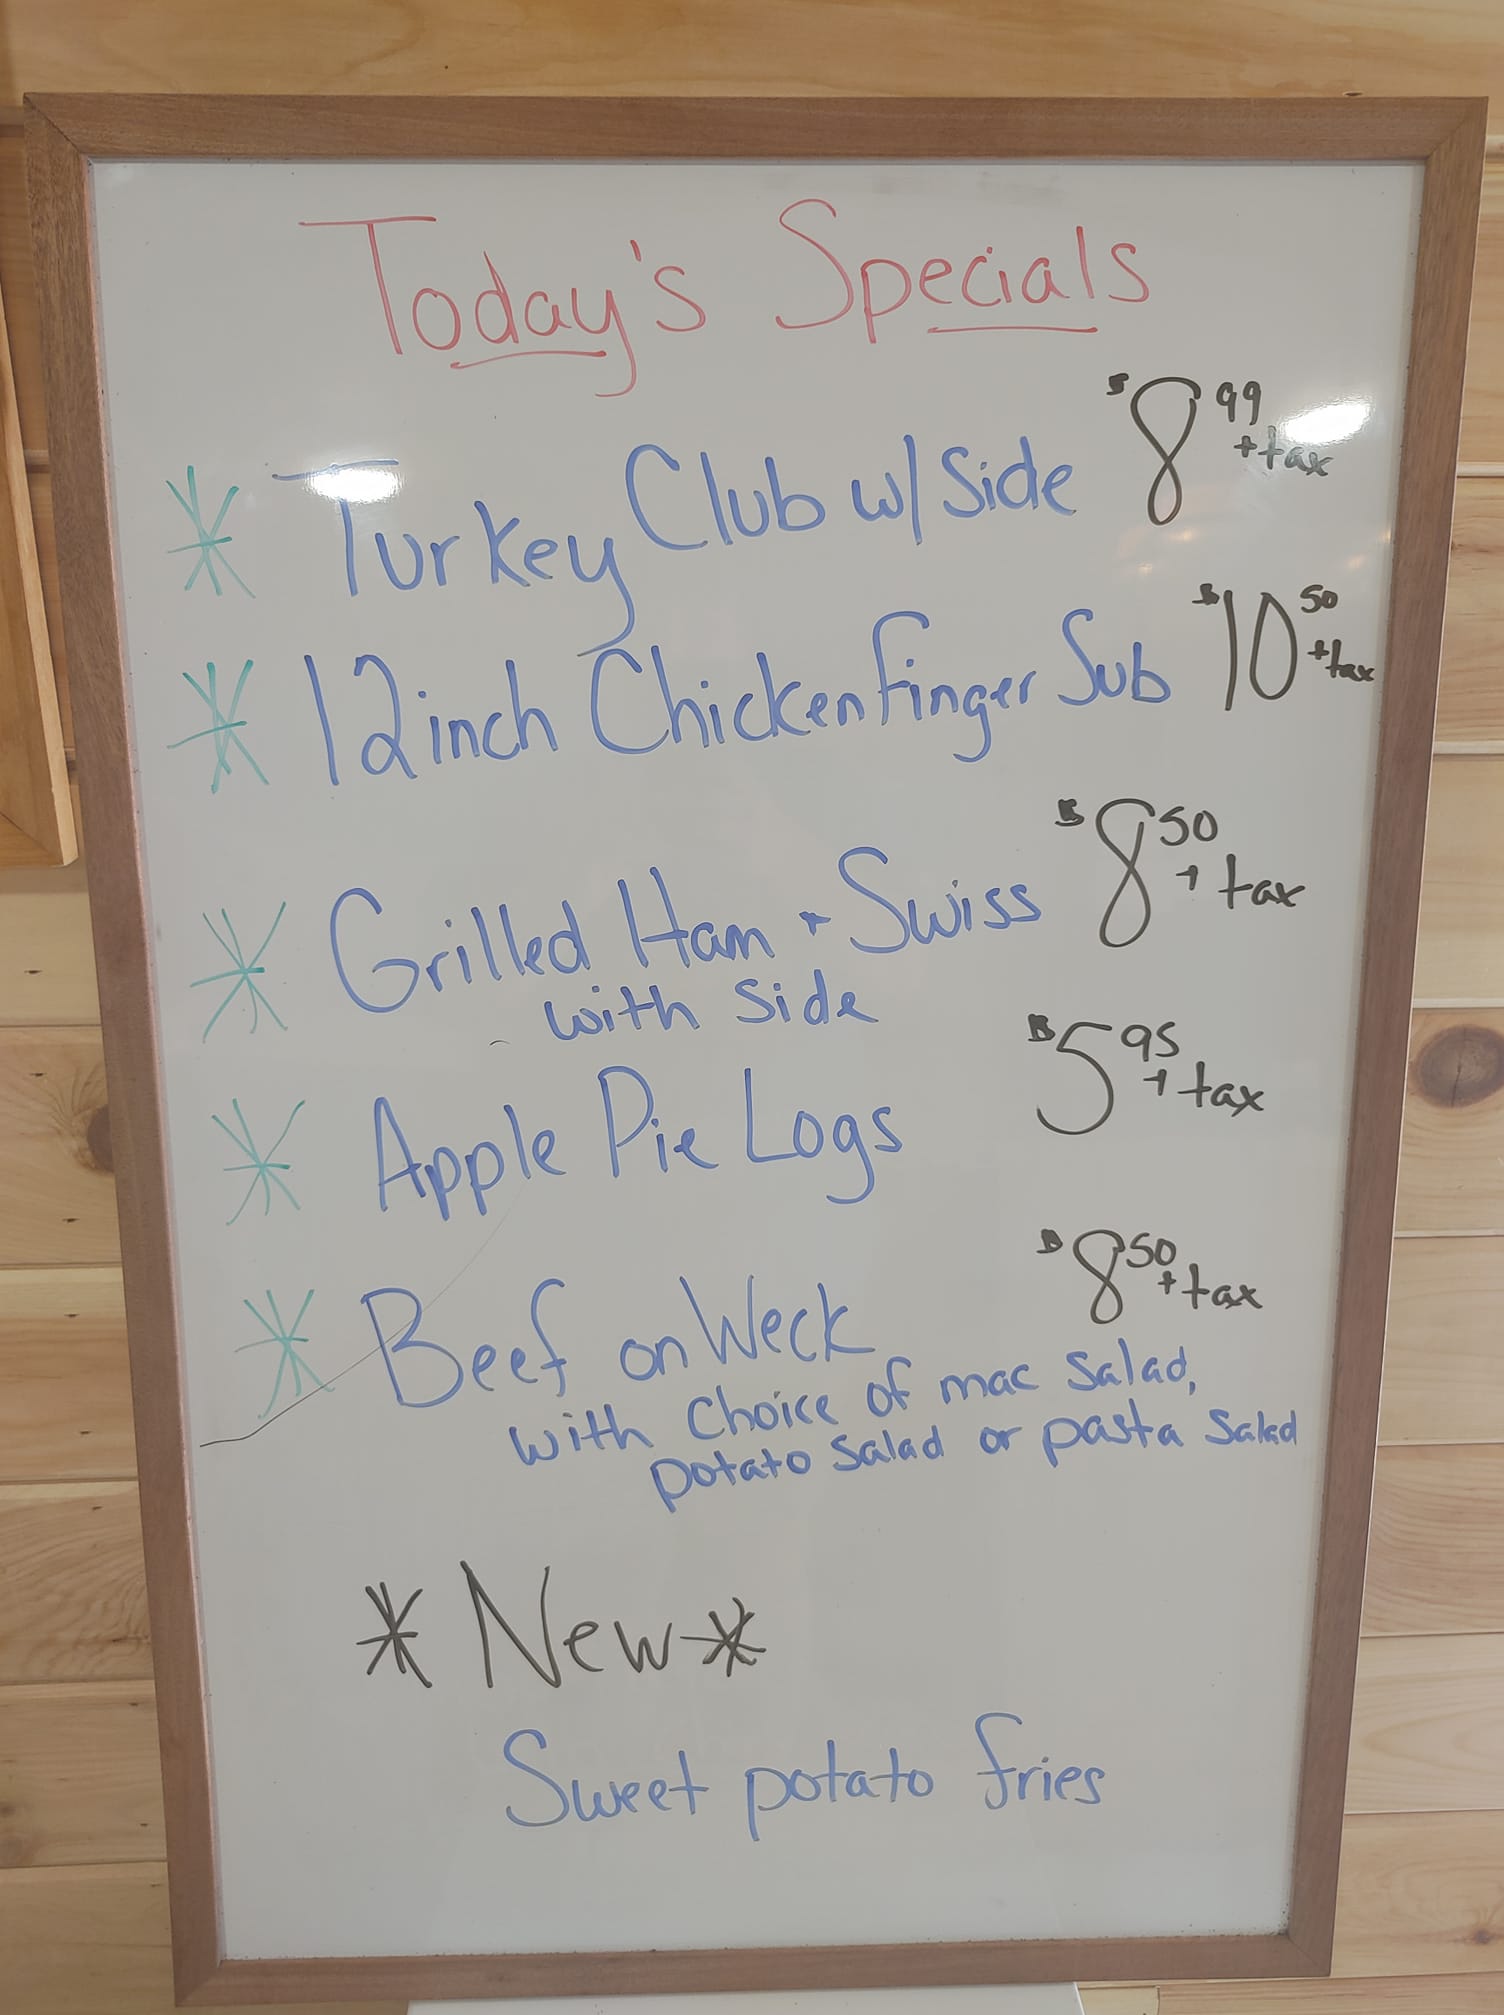 Today's Specials
* Turkey Club w/ Side $8 99 + tax
* 12 inch Chicken Finger Sub $10 50 + tax
* Grilled Ham + Swiss $8 50 + tax
with Side
* Apple Pie Logs $5 95 + tax
* Beef on Weck $8 50 + tax
with Choice of mac Salad,
potato Salad or pasta Salad
* New *
Sweet potato fries